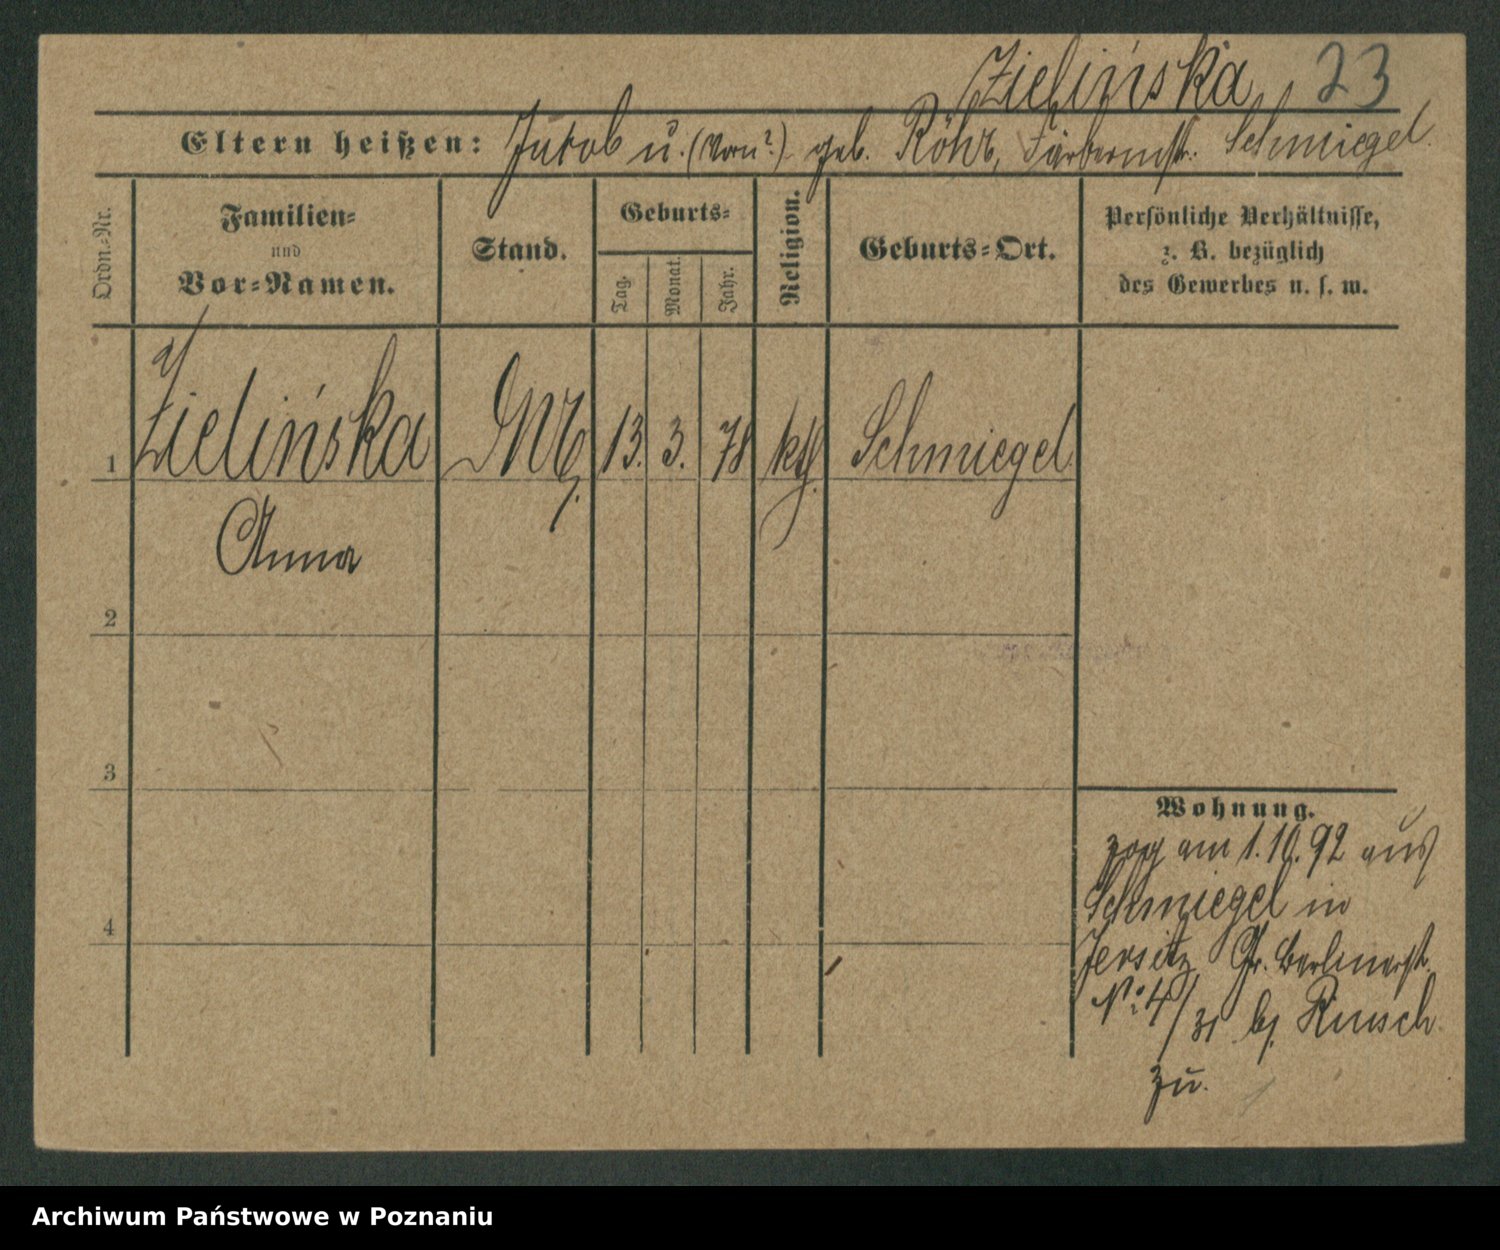 Zielińska 23
Eltern heißen: Jakob u. (Vorn?) geb. Röhr, Färbermstr. Schmiegel.
Ordn.-Nr.
Familien-
und
Vor-Namen.
Stand.
Geburts-
Tag.
Monat.
Jahr.
Religion.
Geburts-Ort.
Persönliche Verhältnisse,
z. B. bezüglich
des Gewerbes u. s. w.
1 Zielińska 13. 3. 78 kth. Schmiegel
Anna
2
3
4
Wohnung.
zog am 1.10.92 aus
Schmiegel in
Jersitz Gr. Berlinerst.
No 4/31 bj. Rusch
zu.
Archiwum Państwowe w Poznaniu